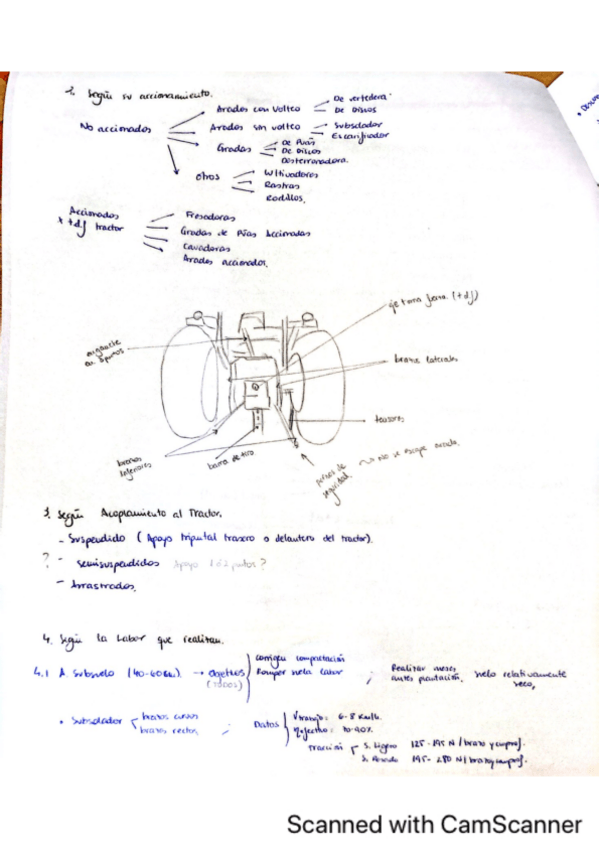 2. Según su accionamiento.
No accionados
Arados con volteo
De vertedera
De Discos
Arados sin volteo
Subsolador
Escarificador
Gradas
De Púas
De Discos
Desterronadora.
Otros
Cultivadores
Rastras
Rodillos.
Accionados
x tdf tractor
Fresadoras
Gradas de Púas Accionadas
Cavadoras
Arados accionados.
eje toma fuerza (tdf)
enganche
brazos laterales
tensores
brazos
inferiores
barra de tiro
seguridad
No se escape arado.
3. Según Acoplamiento al Tractor.
- Suspendido (Apoyo tripuntal trasero o delantero del tractor).
? - Semisuspendidos Apoyo 1 o 2 puntos?
- Arrastrados.
4. Según la Labor que realizan.
4.1 A. Subsuelo (40-60cm). → Objetivos
(TODOS)
Corrigen compactación
Romper suela labor
; Realizar meses
antes plantación, suelo relativamente
seco.
• Subsolador
brazos curvos
brazos rectos
; Datos
Vtrabajo: 6-8 Km/h.
ηefectivo: 70-90%
Tracción
S. Ligero 125-195 N/brazo y cmprof.
S. Pesado 195-280 N/brazo y cmprof.
Scanned with CamScanner